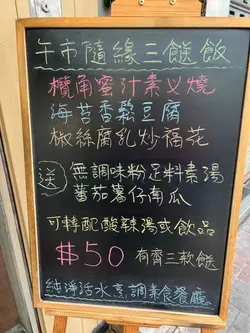 午市隨緣三餸飯
欖角蜜汁素义燒
海苔香鬆豆腐
椒絲腐乳炒福花
送 無調味粉足料素湯
蕃茄薯仔南瓜
可轉配酸辣湯或飲品
$50 有齊三款餸
純淨活水烹調素食餐廳